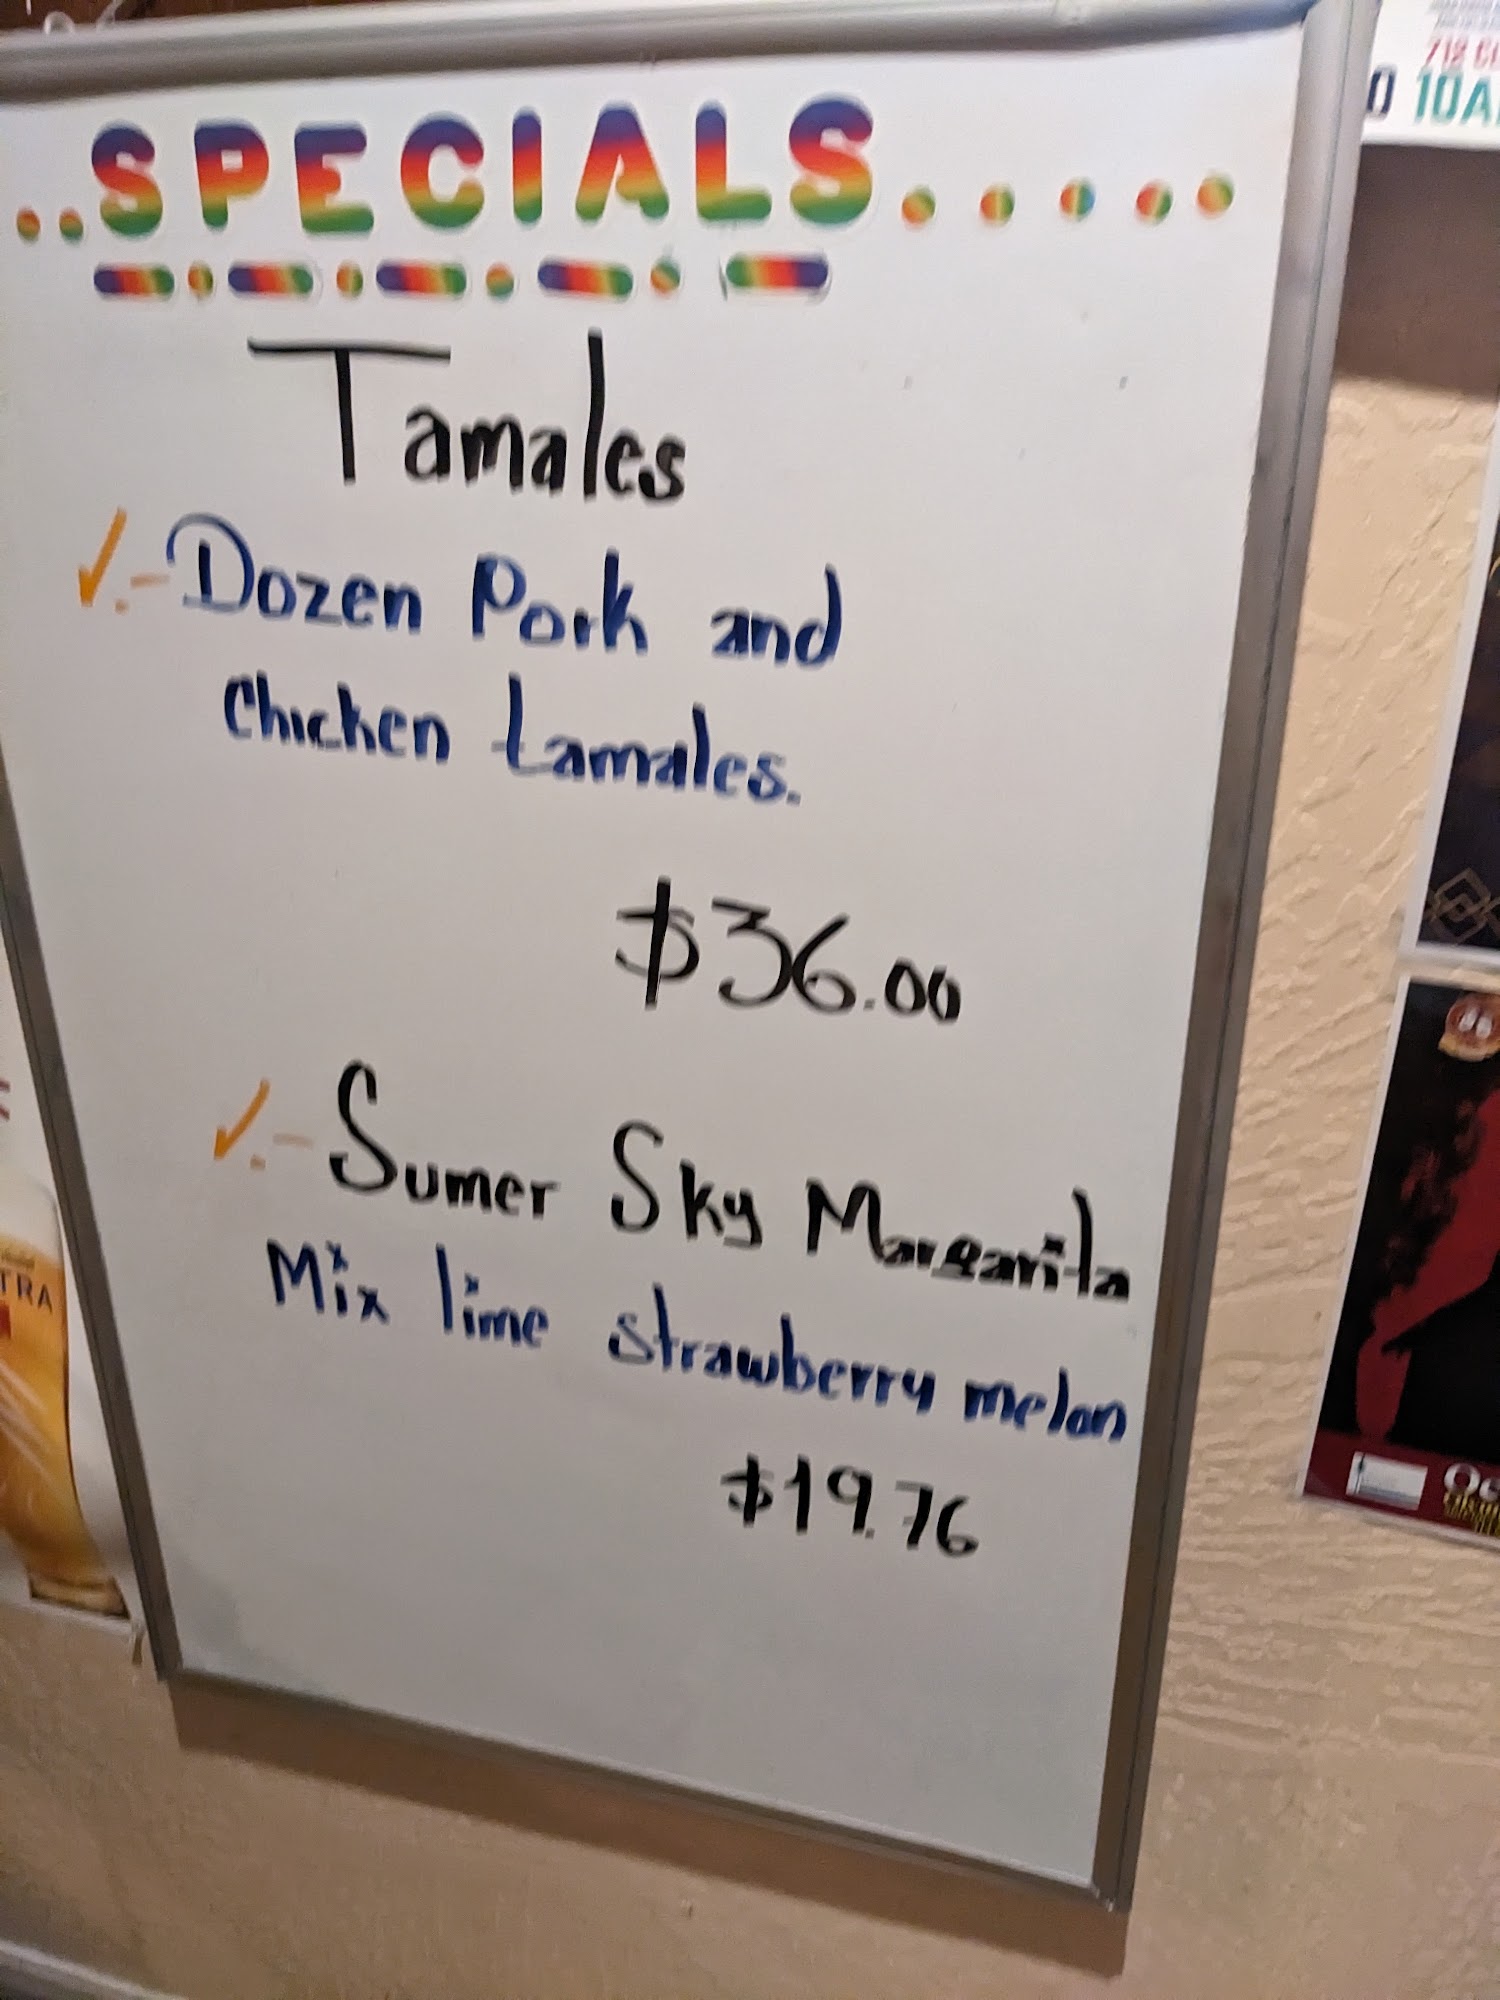 ..SPECIALS.....
Tamales
✓.- Dozen Pork and
Chicken tamales.
$36.00
✓.- Sumer Sky Margarita
Mix lime strawberry melon
$19.76
10A
TRA